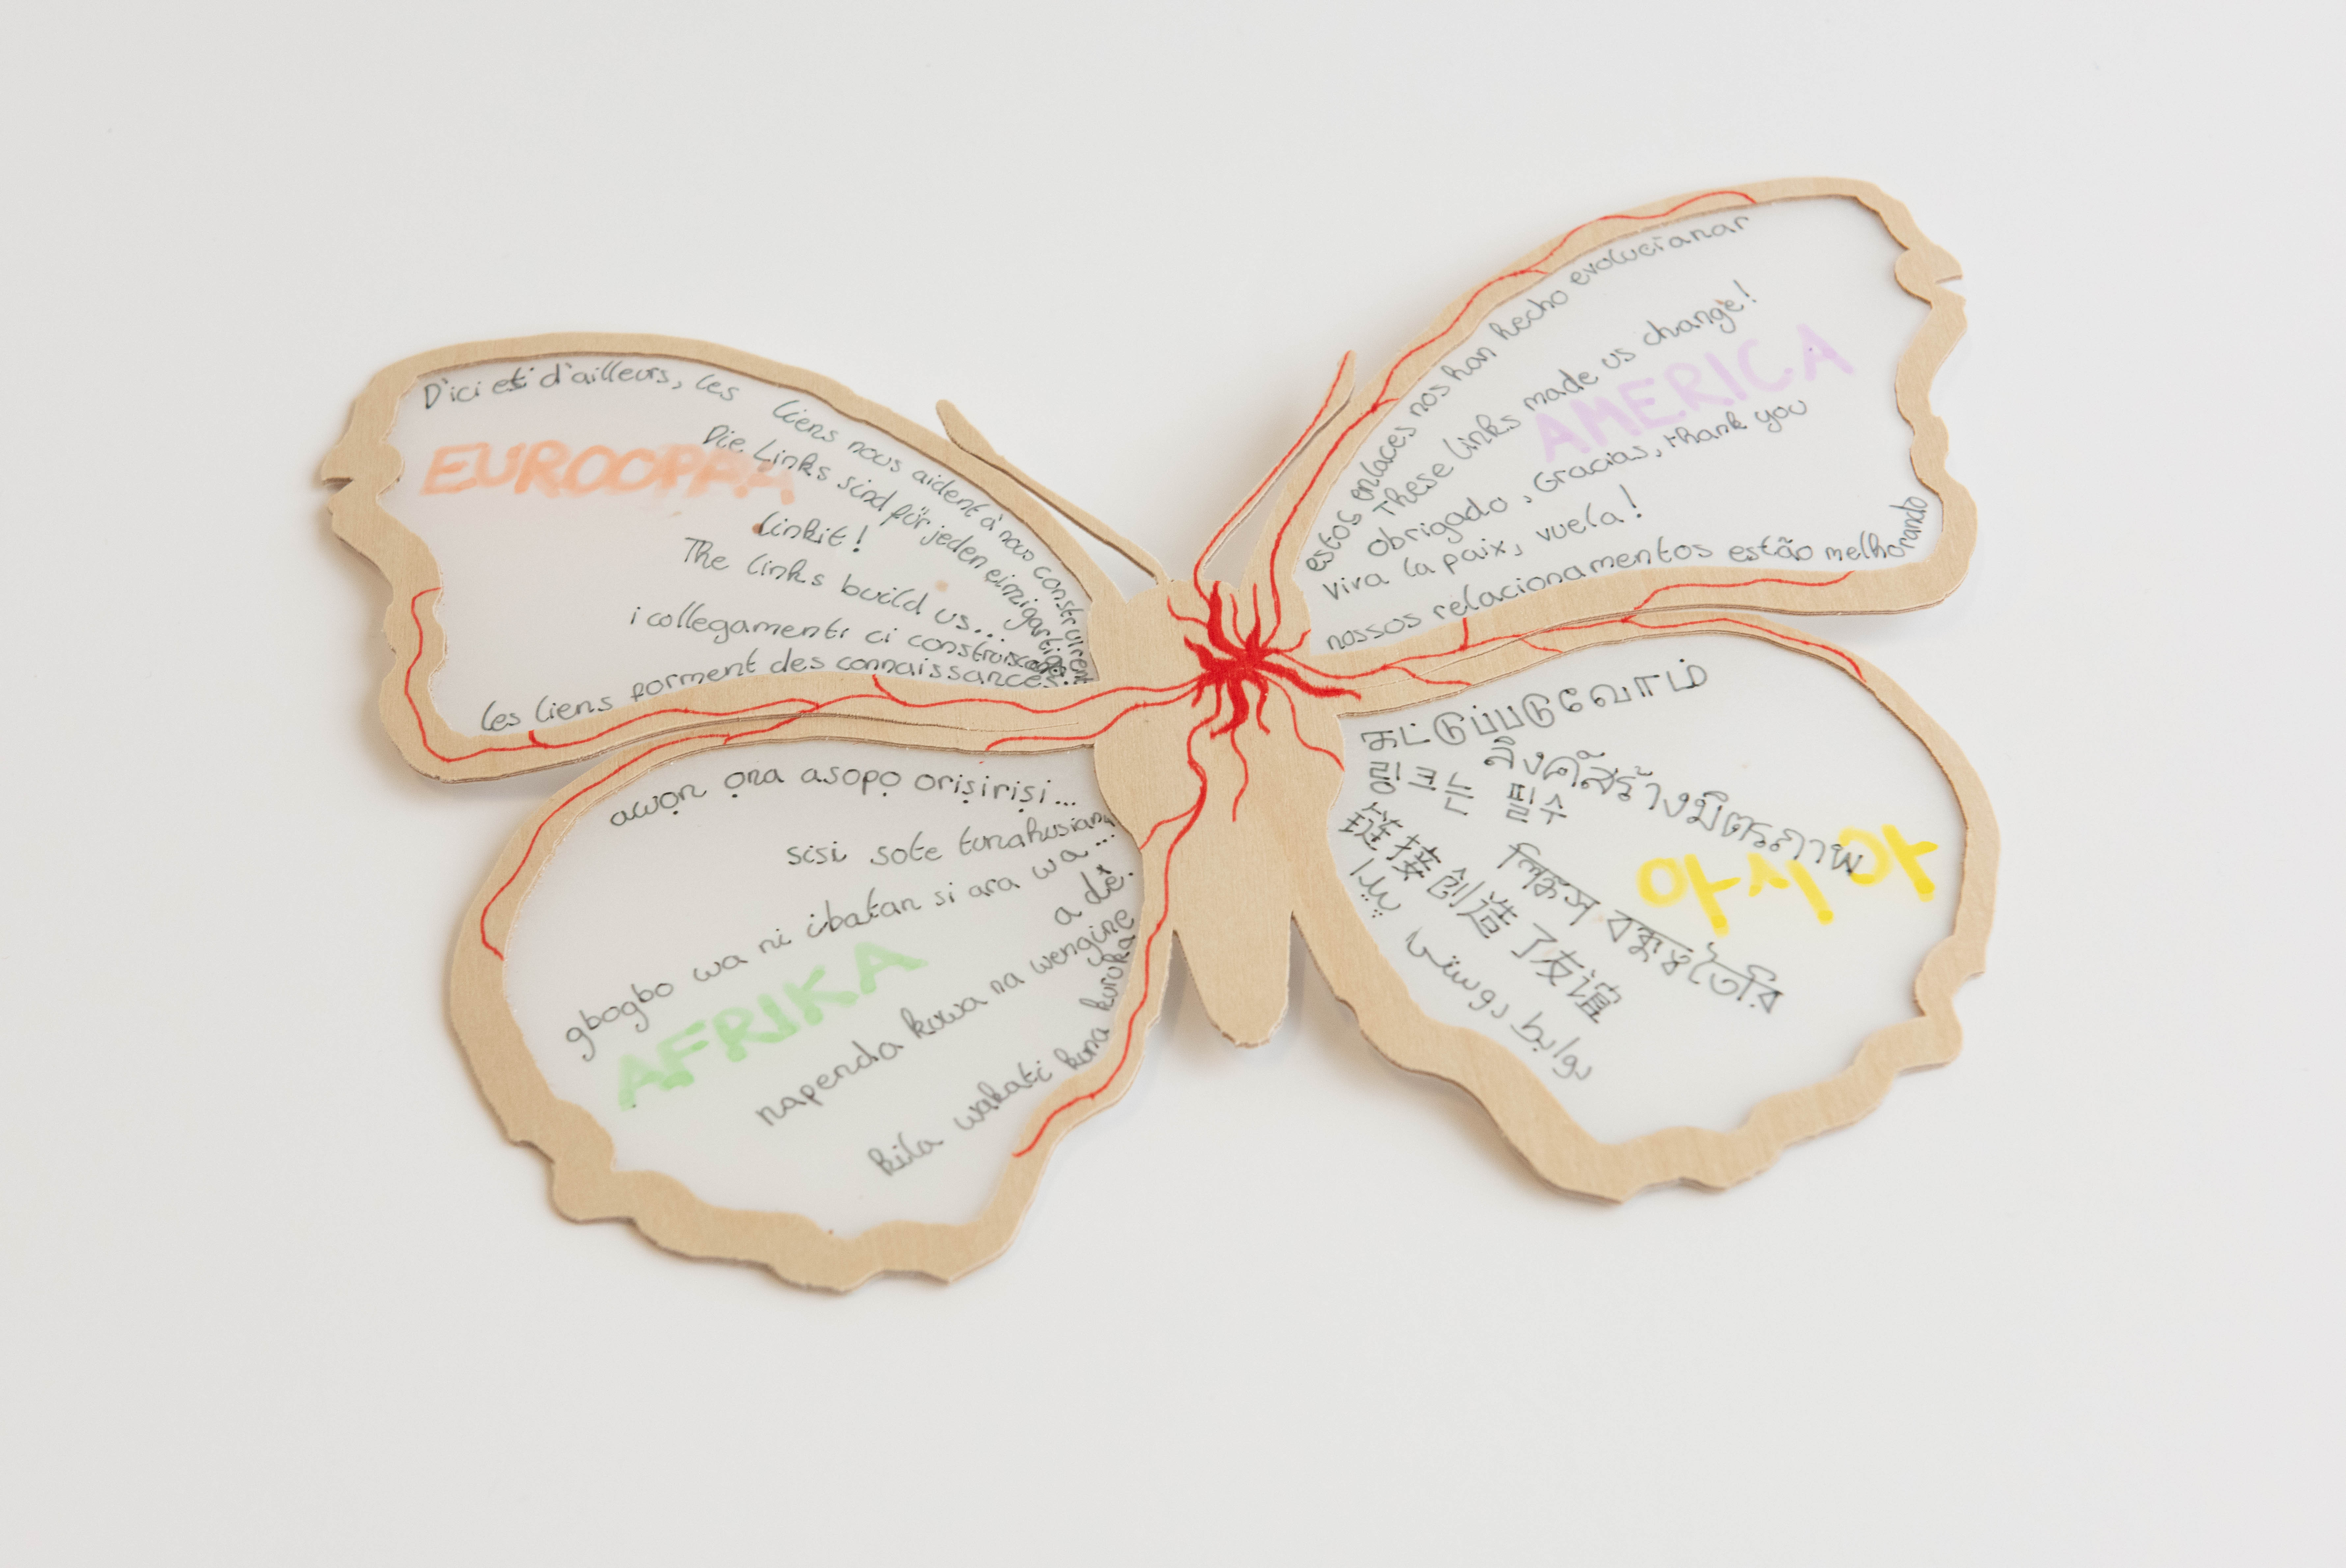 D'ici et d'ailleurs, les liens nous aident à nous construirent
EUROOPPAA
Die Links sind für jeden einzigartig
linkit!
The links build us...
i collegamenti ci construiscono
les liens forment des connaissances.
estos enlaces nos han hecho evolucianar
These links made us change!
AMERICA
obrigado, Gracias, thank you
viva la paix, vuela!
nossos relacionamentos estão melhorando
awọn ọna asopọ oriṣiriṣi...
sisi sote tunahusiana
gbogbo wa ni ibatan si ara wa...
a dè.
AFRIKA
napenda kuwa na wengine
kila wakati kuna kuruka
கட்டுப்படுவோம்
ลิงค์สร้างมิตรภาพ
링크는 필수
아시아
链接创造了友谊
লিঙ্কস বন্ধুত্ব তৈরি
روابط دوستی